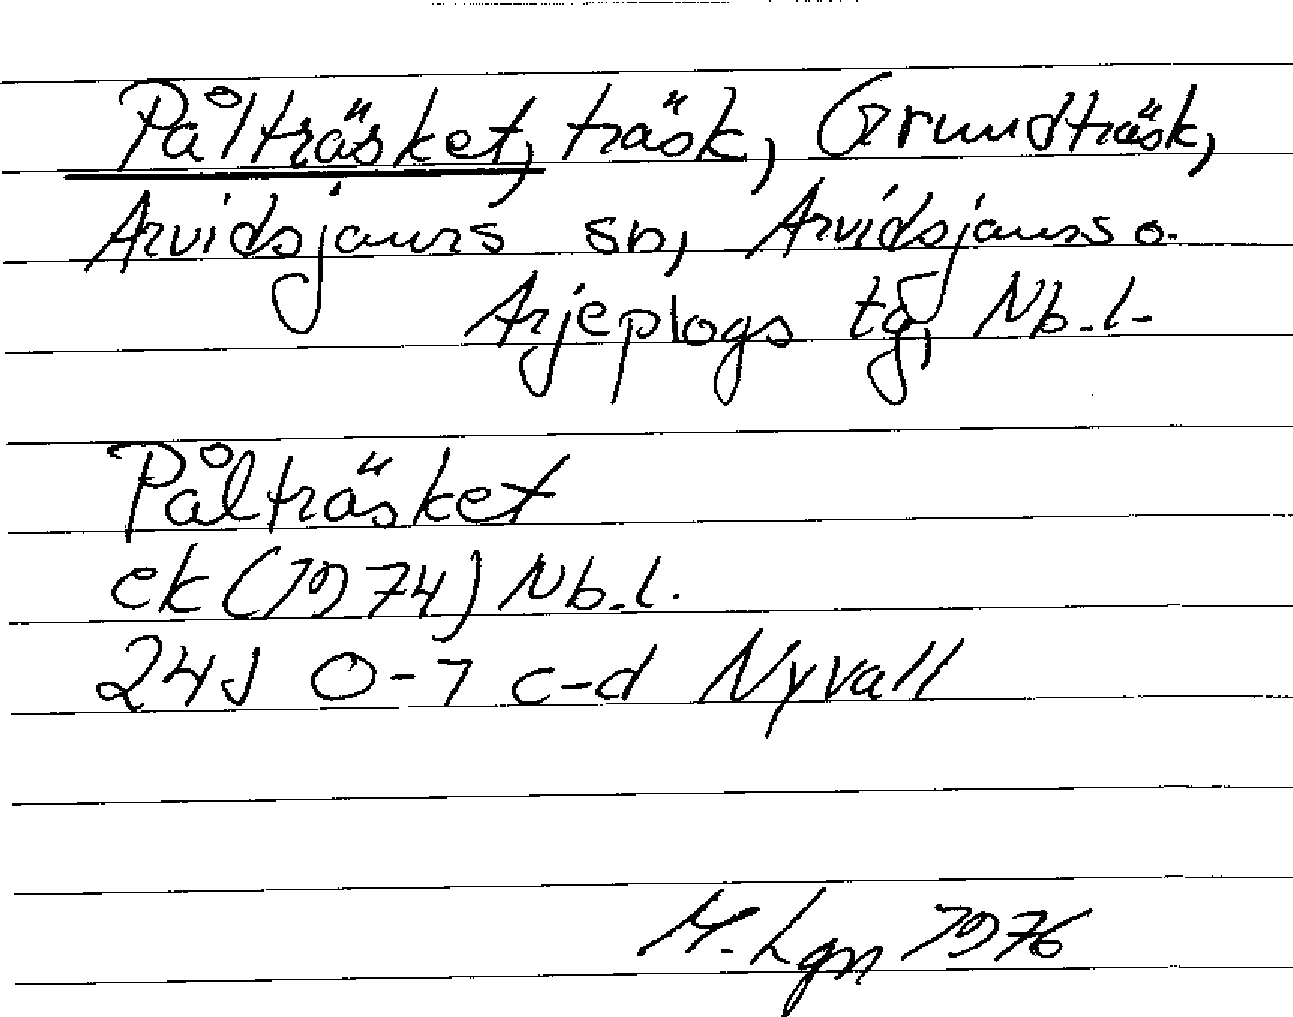 Pålträsket, träsk, Grundträsk,
Arvidsjaurs sn, Arvidsjaurs o.
Arjeplogs tg, Nb.l.
Pålträsket
ek (1974) Nb.l.
24J 0-1 c-d Nyvall
M. Lgn 1976